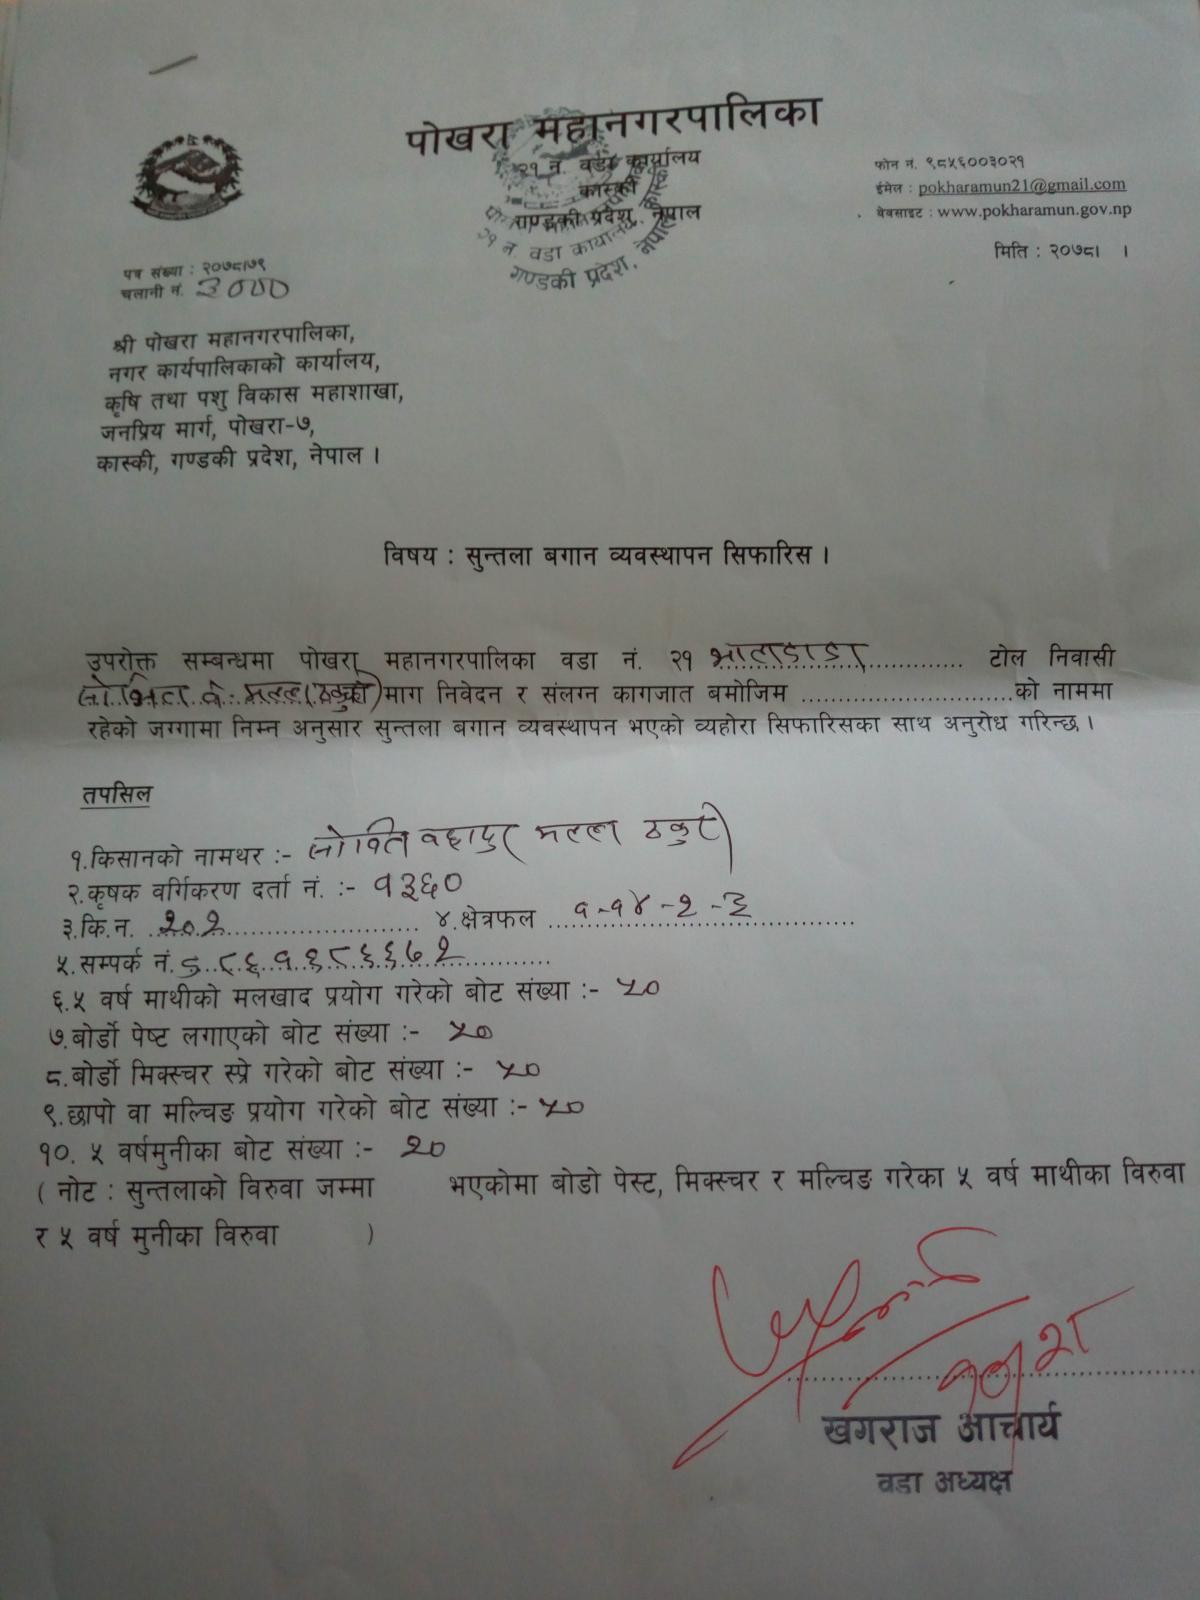 पोखरा महानगरपालिका
२१ नं. वडा कार्यालय
कास्की
गण्डकी प्रदेश, नेपाल
२१ नं. वडा कार्यालय, कास्की
गण्डकी प्रदेश, नेपाल
फोन नं. ९८५६००३०२१
ईमेल : pokharamun21@gmail.com
वेबसाइट : www.pokharamun.gov.np
मिति : २०७८। ।
पत्र संख्या : २०७८।७९
चलानी नं. ३०००
श्री पोखरा महानगरपालिका,
नगर कार्यपालिकाको कार्यालय,
कृषि तथा पशु विकास महाशाखा,
जनप्रिय मार्ग, पोखरा-७,
कास्की, गण्डकी प्रदेश, नेपाल ।
विषय : सुन्तला बगान व्यवस्थापन सिफारिस ।
उपरोक्त सम्बन्धमा पोखरा महानगरपालिका वडा नं. २१ भालाडाडा टोल निवासी
मल्ल ठकुरी माग निवेदन र संलग्न कागजात बमोजिम ........................को नाममा
रहेको जग्गामा निम्न अनुसार सुन्तला बगान व्यवस्थापन भएको व्यहोरा सिफारिसका साथ अनुरोध गरिन्छ ।
तपसिल
१.किसानको नामथर :- बहादुर मल्ल ठकुरी
२.कृषक वर्गिकरण दर्ता नं. :- १३६०
३.कि.न. २०२ ४.क्षेत्रफल १-१४-२-३
५.सम्पर्क नं.
६.५ वर्ष माथीको मलखाद प्रयोग गरेको बोट संख्या :- ५०
७.बोर्डो पेष्ट लगाएको बोट संख्या :- ५०
८.बोर्डो मिक्स्चर स्प्रे गरेको बोट संख्या :- ५०
९.छापो वा मल्चिङ प्रयोग गरेको बोट संख्या :- ५०
१०. ५ वर्षमुनीका बोट संख्या :- २०
( नोट : सुन्तलाको विरुवा जम्मा भएकोमा बोडो पेस्ट, मिक्स्चर र मल्चिङ गरेका ५ वर्ष माथीका विरुवा
र ५ वर्ष मुनीका विरुवा )
१०/२८
खगराज आचार्य
वडा अध्यक्ष